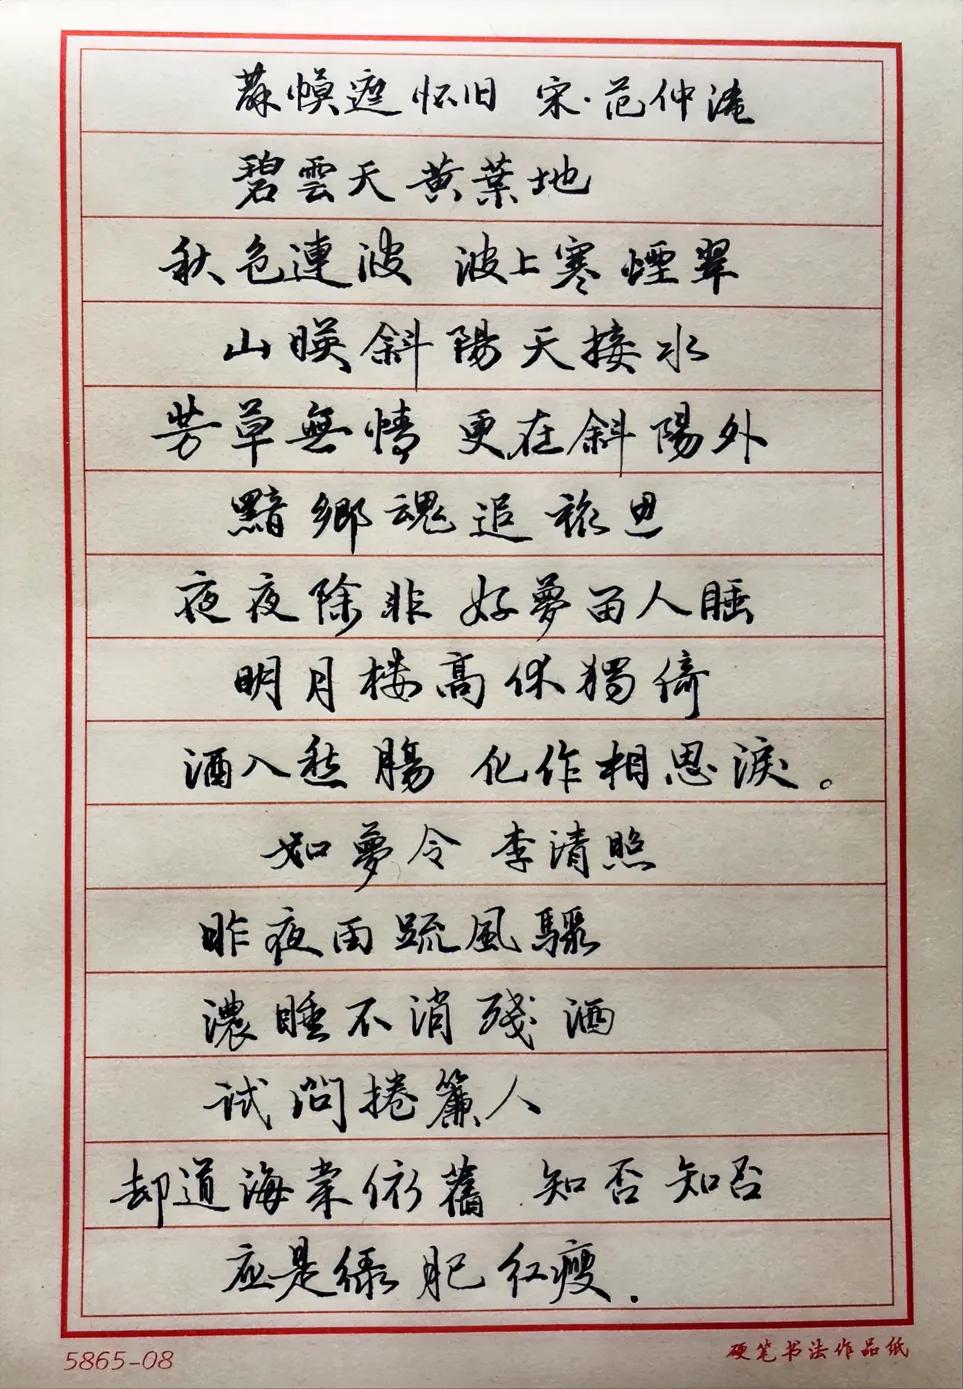 蘇幙遮 怀旧 宋·范仲淹
碧雲天 黄葉地
秋色連波 波上寒煙翠
山暎斜陽天接水
芳草無情 更在斜陽外
黯鄉魂 追旅思
夜夜除非 好夢留人睡
明月楼高休獨倚
酒入愁腸 化作相思淚。
如夢令 李清照
昨夜雨疏風驟
濃睡不消殘酒
试问捲簾人
却道海棠依舊 知否知否
应是绿肥红瘦.
5865-08
硬笔书法作品纸